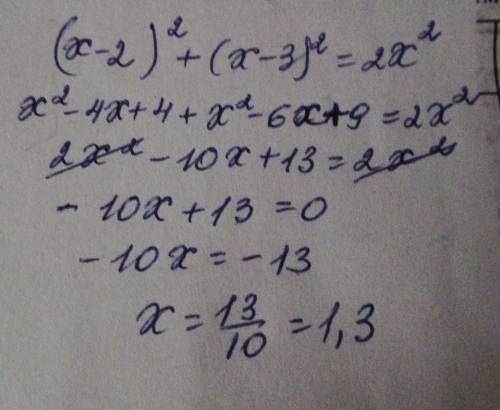 (x-2)² + (x-3)² = 2x²
x² - 4x + 4 + x² - 6x + 9 = 2x²
2x² - 10x + 13 = 2x²
- 10x + 13 = 0
- 10x = - 13
x = 13/10 = 1,3